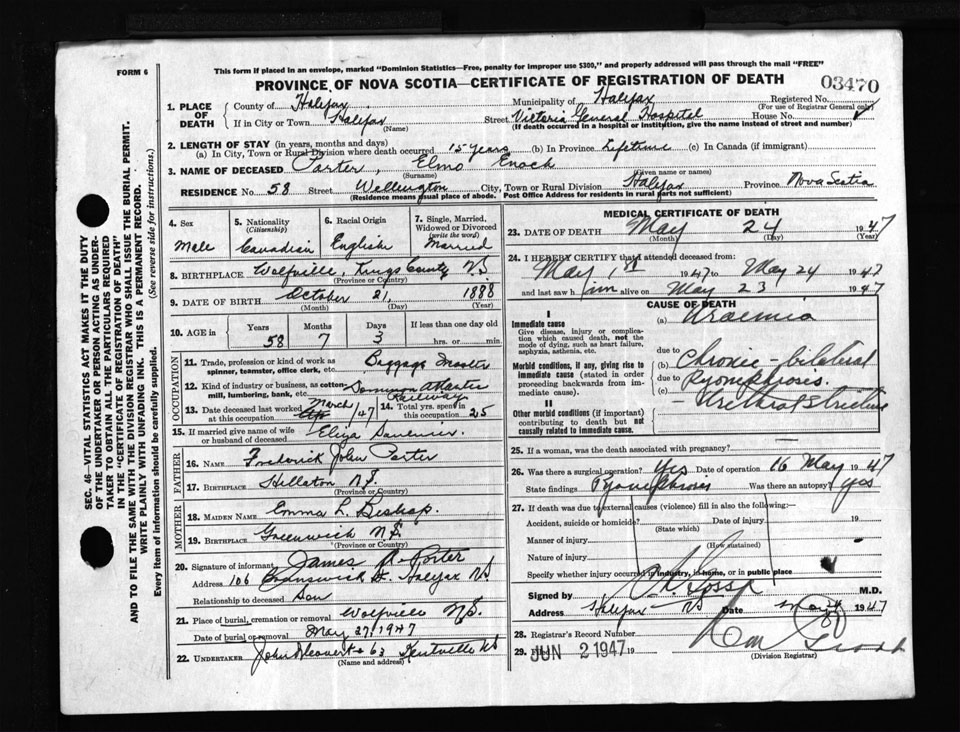 FORM 6
This form if placed in an envelope, marked "Dominion Statistics—Free, penalty for improper use $300," and properly addressed will pass through the mail "FREE"
PROVINCE OF NOVA SCOTIA—CERTIFICATE OF REGISTRATION OF DEATH
03470
1. PLACE OF DEATH
County of Halifax
Municipality of Halifax
Registered No.
(For use of Registrar General only)
If in City or Town Halifax
(Name)
Street Victoria General Hospital House No.
(If death occurred in a hospital or institution, give the name instead of street and number)
2. LENGTH OF STAY (in years, months and days)
(a) In City, Town or Rural Division where death occurred 15 years (b) In Province Lifetime (c) In Canada (if immigrant)
3. NAME OF DECEASED Porter, Elmo Enoch
(Surname) (Given name or names)
RESIDENCE No. 58 Street Wellington City, Town or Rural Division Halifax Province Nova Scotia
(Residence means usual place of abode. Post Office Address for residents in rural parts not sufficient)
4. Sex
Male
5. Nationality
(Citizenship)
Canadian
6. Racial Origin
English
7. Single, Married, Widowed or Divorced
(write the word)
Married
8. BIRTHPLACE Wolfville, Kings County NS
(Province or Country)
9. DATE OF BIRTH October 21, 1888
(Month) (Day) (Year)
10. AGE in
Years Months Days If less than one day old
58 7 3 hrs. or min.
OCCUPATION
11. Trade, profession or kind of work as spinner, teamster, office clerk, etc. Baggage Master
12. Kind of industry or business, as cotton mill, lumbering, bank, etc. Dominion Atlantic Railway
13. Date deceased last worked at this occupation March/47
14. Total yrs. spent in this occupation 25
15. If married give name of wife or husband of deceased Eliza
FATHER
16. NAME Frederick John Porter
17. BIRTHPLACE N.S.
(Province or Country)
MOTHER
18. MAIDEN NAME Emma L. Bishop
19. BIRTHPLACE Greenwich N.S.
(Province or Country)
20. Signature of informant James Porter
Address 106 Brunswick St. Halifax NS
Relationship to deceased Son
21. Place of burial, cremation or removal Wolfville N.S.
Date of burial or removal May 27, 1947
22. UNDERTAKER Kentville NS
(Name and address)
MEDICAL CERTIFICATE OF DEATH
23. DATE OF DEATH May 24 1947
(Month) (Day) (Year)
24. I HEREBY CERTIFY that I attended deceased from:
May 1st 1947 to May 24 1947
and last saw him alive on May 23 1947
CAUSE OF DEATH
I
Immediate cause
Give disease, injury or complication which caused death, not the mode of dying, such as heart failure, asphyxia, asthenia, etc.
(a) Uraemia
due to
Morbid conditions, if any, giving rise to immediate cause (stated in order proceeding backwards from immediate cause).
(b) Chronic - bilateral
due to Pyonephrosis.
(c) - Urethral Stricture
II
Other morbid conditions (if important) contributing to death but not causally related to immediate cause.
25. If a woman, was the death associated with pregnancy?
26. Was there a surgical operation? Yes Date of operation 16 May 1947
State findings Pyonephrosis Was there an autopsy? yes
27. If death was due to external causes (violence) fill in also the following:
Accident, suicide or homicide? Date of injury 19
(State which)
Manner of injury
(How sustained)
Nature of injury
Specify whether injury occurred in industry, in home, or in public place
Signed by M.D.
Address Halifax - NS Date May 24 1947
28. Registrar's Record Number
29. Filed JUN 2 1947 19
(Division Registrar)
SEC. 46—VITAL STATISTICS ACT MAKES IT THE DUTY OF THE UNDERTAKER OR PERSON ACTING AS UNDERTAKER TO OBTAIN ALL THE PARTICULARS REQUIRED IN THE "CERTIFICATE OF REGISTRATION OF DEATH"
AND TO FILE THE SAME WITH THE DIVISION REGISTRAR WHO SHALL ISSUE THE BURIAL PERMIT.
WRITE PLAINLY WITH UNFADING INK. THIS IS A PERMANENT RECORD.
Every item of information should be carefully supplied. (See reverse side for instructions.)